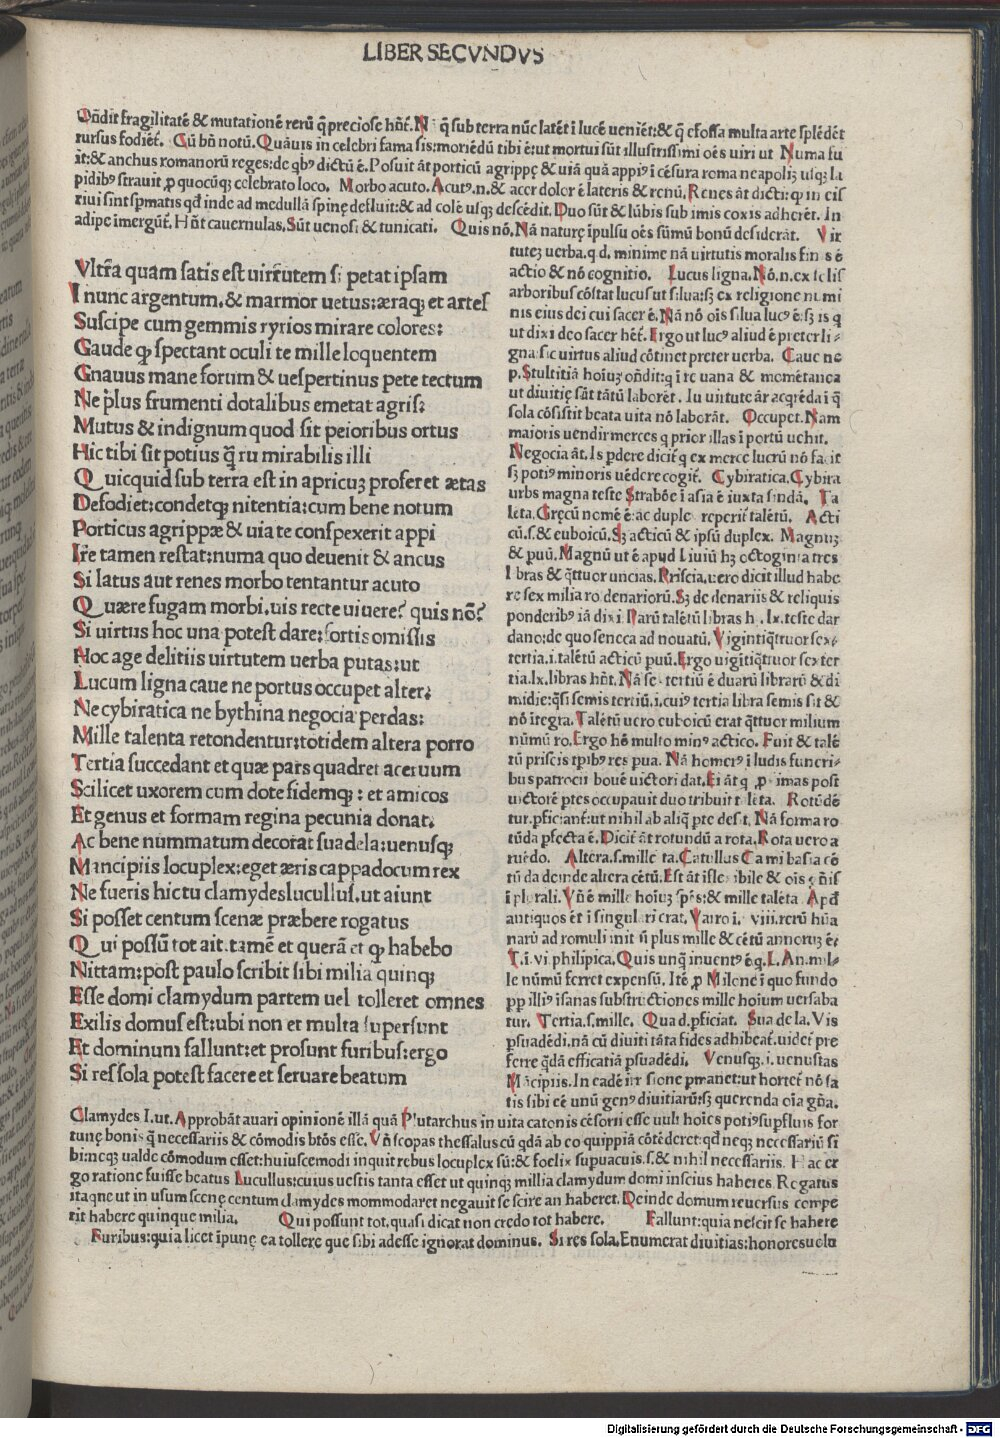 LIBER SECVNDVS
Oñdit fragilitatẽ & mutationẽ rerũ q̃ preciose hñt. N q̃ sub terra nũc latẽt ĩ lucẽ ueniẽt:& q̃ effossa multa arte splẽdẽt
rursus fodiẽt. Cũ bñ notũ. Quãuis in celebri fama sis: moriẽdũ tibi ẽt: ut mortui sũt illustrissimi oẽs uiri ut Numa fu
it:& anchus romanorũ reges: de qbꝰ dictũ ẽ. Posuit ãt porticũ agrippę & uiã quã appiꝰ ĩ cẽsura roma neapolĩ usqꝫ la
pidibꝰ strauit ꝓ quocũqꝫ celebrato loco. Morbo acuto. Acutꝰ.n. & acer dolor ẽ lateris & renũ. Renes ãt dicti: ꝙ in eis
riui sint spmatis qď inde ad medullã spinę defluit:& ad colẽ usqꝫ descẽdit. Duo sũt & lũbis sub imis coxis adherẽt. In
adipe imergũt. Hñt cauernulas. Sũt uenosi & tunicati. Quis nõ. Nã naturę ĩpulsu oẽs sũmũ bonũ desiderãt. Vir
Vltra quam satis est uirtutem si petat ipsam
I nunc argentum. & marmor uetus: æraqꝫ et artes
Suscipe cum gemmis tyrios mirare colores:
Gaude ꝙ spectant oculi te mille loquentem
Gnauus mane forum & uespertinus pete tectum
Ne plus frumenti dotalibus emetat agris:
Mutus & indignum quod sit peioribus ortus
Hic tibi sit potius q̃ tu mirabilis illi
Quicquid sub terra est in apricuꝫ proferet ætas
Defodiet: condetqꝫ nitentia: cum bene notum
Porticus agrippæ & uia te conspexerit appi
Ire tamen restat: numa quo deuenit & ancus
Si latus aut renes morbo tentantur acuto
Quære fugam morbi, uis recte uiuere? quis nõ?
Si uirtus hoc una potest dare: fortis omissis
Hoc age delitiis uirtutem uerba putas: ut
Lucum ligna caue ne portus occupet alter:
Ne cybiratica ne bythina negocia perdas:
Mille talenta retondentur: totidem altera porro
Tertia succedant et quæ pars quadret aceruum
Scilicet uxorem cum dote fidemqꝫ: et amicos
Et genus et formam regina pecunia donat.
Ac bene nummatum decorat suadela: uenusqꝫ
Mancipiis locuplex: eget æris cappadocum rex
Ne fueris hic tu clamydes lucullus. ut aiunt
Si posset centum scenæ præbere rogatus
Qui possũ tot ait. tamẽ et querã et ꝙ habebo
Mittam: post paulo scribit sibi milia quinqꝫ
Esse domi clamydum partem uel tolleret omnes
Exilis domus est: ubi non et multa supersunt
Et dominum fallunt: et prosunt furibus: ergo
Si res sola potest facere et seruare beatum
tuteꝫ uerba. q.d. minime nã uirtutis moralis finis ẽ
actio & nõ cognitio. Lucus ligna. Nõ.n. ex solis
arboribus cõstat lucus ut silua: sꝫ ex religione numi
nis eius dei cui sacer ẽ. Nã nõ oĩs silua lucꝰ ẽ: sꝫ is q
ut dixi deo sacer hẽt. Ergo ut lucꝰ aliud ẽ preter li-
gna sic uirtus aliud cõtinet preter uerba. Caue ne
p. Stultitiã hoiuꝫ oñdit: q ĩ re uana & momẽtanea
ut diuitię sãt tãtũ laborẽt. In uirtute ãt acqrẽda ĩ q̃
sola cõsistit beata uita nõ laborãt. Occupet. Nam
maioris uendir merces q prior illas ĩ portũ uehit.
Negocia ãt. Is pdere dicit q ex merce lucrũ nõ facit
sꝫ potiꝰ minoris uẽdere cogit. Cybiratica. Cybira
urbs magna teste Strabõe ĩ asia ẽ iuxta sindã. Ta
lẽta. Gręcũ nomẽ ẽ: ac duplex reperit talẽtũ. Acti
cũ.s. & euboicũ. Sꝫ acticũ & ipsũ duplex. Magnuꝫ
& puũ. Magnũ ut ẽ apud Liuiũ hꝫ octoginta tres
libras & q̃ttuor uncias. Priscia. uero dicit illud habe
re sex milia ro denariorũ. Sꝫ de denariis & reliquis
ponderibꝰ iã dixi. Paruũ talẽtũ libras h. lx. teste dar
dano: de quo seneca ad nouatũ. Vigintiq̃ttuor sex-
tertia.i. talẽtũ acticũ puũ. Ergo uigĩtiq̃ttuor sexter
tia. lx. libras hñt. Nã sextertiũ ẽ duarũ librarũ & di
midię: q̃si semis tertiũ.i. cuiꝰ tertia libra semis sit &
nõ ĩtegra. Talẽtũ uero euboicũ erat q̃ttuor milium
nũmũ ro. Ergo hẽ multo minꝰ actico. Fuit & talẽ
tũ priscis tpibꝰ res pua. Nã homerꝰ ĩ ludis funeri-
bus patrocli bouẽ uictori dat. Ei ãt q pximas post
uictorẽ ptes occupauit duo tribuit talẽta. Rotũdẽ
tur. pficiant: ut nihil ab aliq̃ pte desit. Nã forma ro
tũda pfecta ẽ. Dicit ãt rotundũ a rota. Rota uero a
ruẽdo. Altera.s. mille ta. Catullus Da mi basia cẽ
tũ da deinde altera cẽtũ. Est ãt ĩslexibile & oĩs gñis
ĩ plurali. Vñ ẽ mille hoiuꝫ spẽs: & mille talẽta. Apď
antiquos ẽt ĩ singulari erat. Varro ĩ. xviii. rerũ hũa
narũ ad romuli initiũ plus mille & cẽtũ annoruꝫ ẽ:
T. ĩ. vi philipica. Quis unq̃ inuentꝰ ẽ q. L. An. mil-
le nũmũ ferret expensũ. Itẽ ꝓ Milone ĩ quo fundo
pp illiꝰ ĩsanas substructiones mille hoium uersaba
tur. Tertia.s. mille. Quad. pficiat. Suadela. Vis
psuadẽdi. nã cũ diuiti tãta fides adhibeat. uidet pre
ferre q̃dã efficatiã psuadẽdi. Venusqꝫ.i. uenustas
Mãcipiis. In eadẽ irrisione pmanet: ut hortet nõ sa
tis sibi cẽ unũ genꝰ diuitiarũ: sꝫ querenda oĩa gña.
Clamydes l. ut. Approbãt auari opinionẽ illã quã Plutarchus in uita catonis cẽsorii esse uult hoies potiꝰ supfluis for
tunę bonis q̃ necessariis & cõmodis btõs esse. Vñ scopas thessalus cũ qdã ab eo quippiã cõtẽderet: qď neqꝫ necessariũ si
bi: neqꝫ ualde cõmodum esset: huiuscemodi inquit rebus locuplex sũ: & foelix supuacuis.s. & nihil necessariis. Hac er
go ratione fuisse beatus Lucullus: cuius uestis tanta esset ut quinqꝫ millia clamydum domi inscius haberes. Rogatus
itaqꝫ ut in usum scenę centum clamydes mommodaret negauit se scire an haberet. Deinde domum reuersus compe
rit habere quinque milia. Qui possunt tot. quasi dicat non credo tot habere. Fallunt: quia nescit se habere
Furibus: quia licet ĩpunę ea tollere que sibi adesse ignorat dominus. Si res sola. Enumerat diuitias: honores uolu
Digitalisierung gefördert durch die Deutsche Forschungsgemeinschaft - DFG